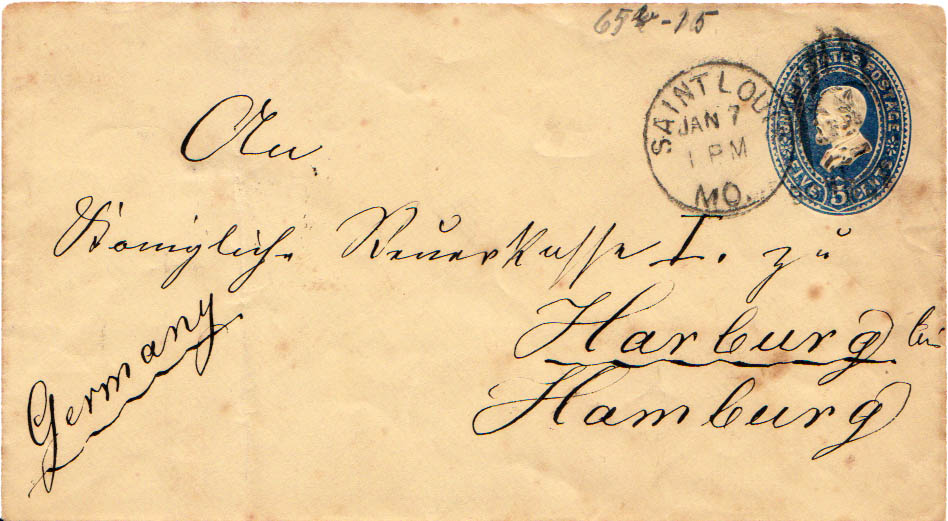 65
-15
UNITED STATES POSTAGE
FIVE 5 CENTS
SAINT LOUI
JAN 7
1 PM
MO.
An
Königliche Steuer Kasse I. zu
Harburg bei
Hamburg
Germany